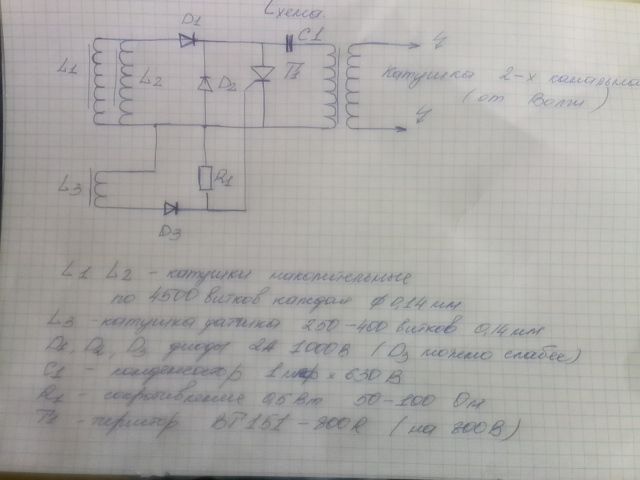 Схема
D1
C1
L1
L2
D2
T1
Катушка 2-х канальная
(от Волги)
L3
R1
D3
L1 L2 - катушки накопительные
по 4500 витков каждая ф 0,14 мм
L3 - катушка датчика 250-400 витков 0,14 мм
D1, D2, D3 диоды 2А 1000В (D3 можно слабее)
C1 - конденсатор 1 мкф × 630 В
R1 - сопротивление 0,5 Вт 50-100 Ом
T1 - тиристор BT 151-800R (на 800В)